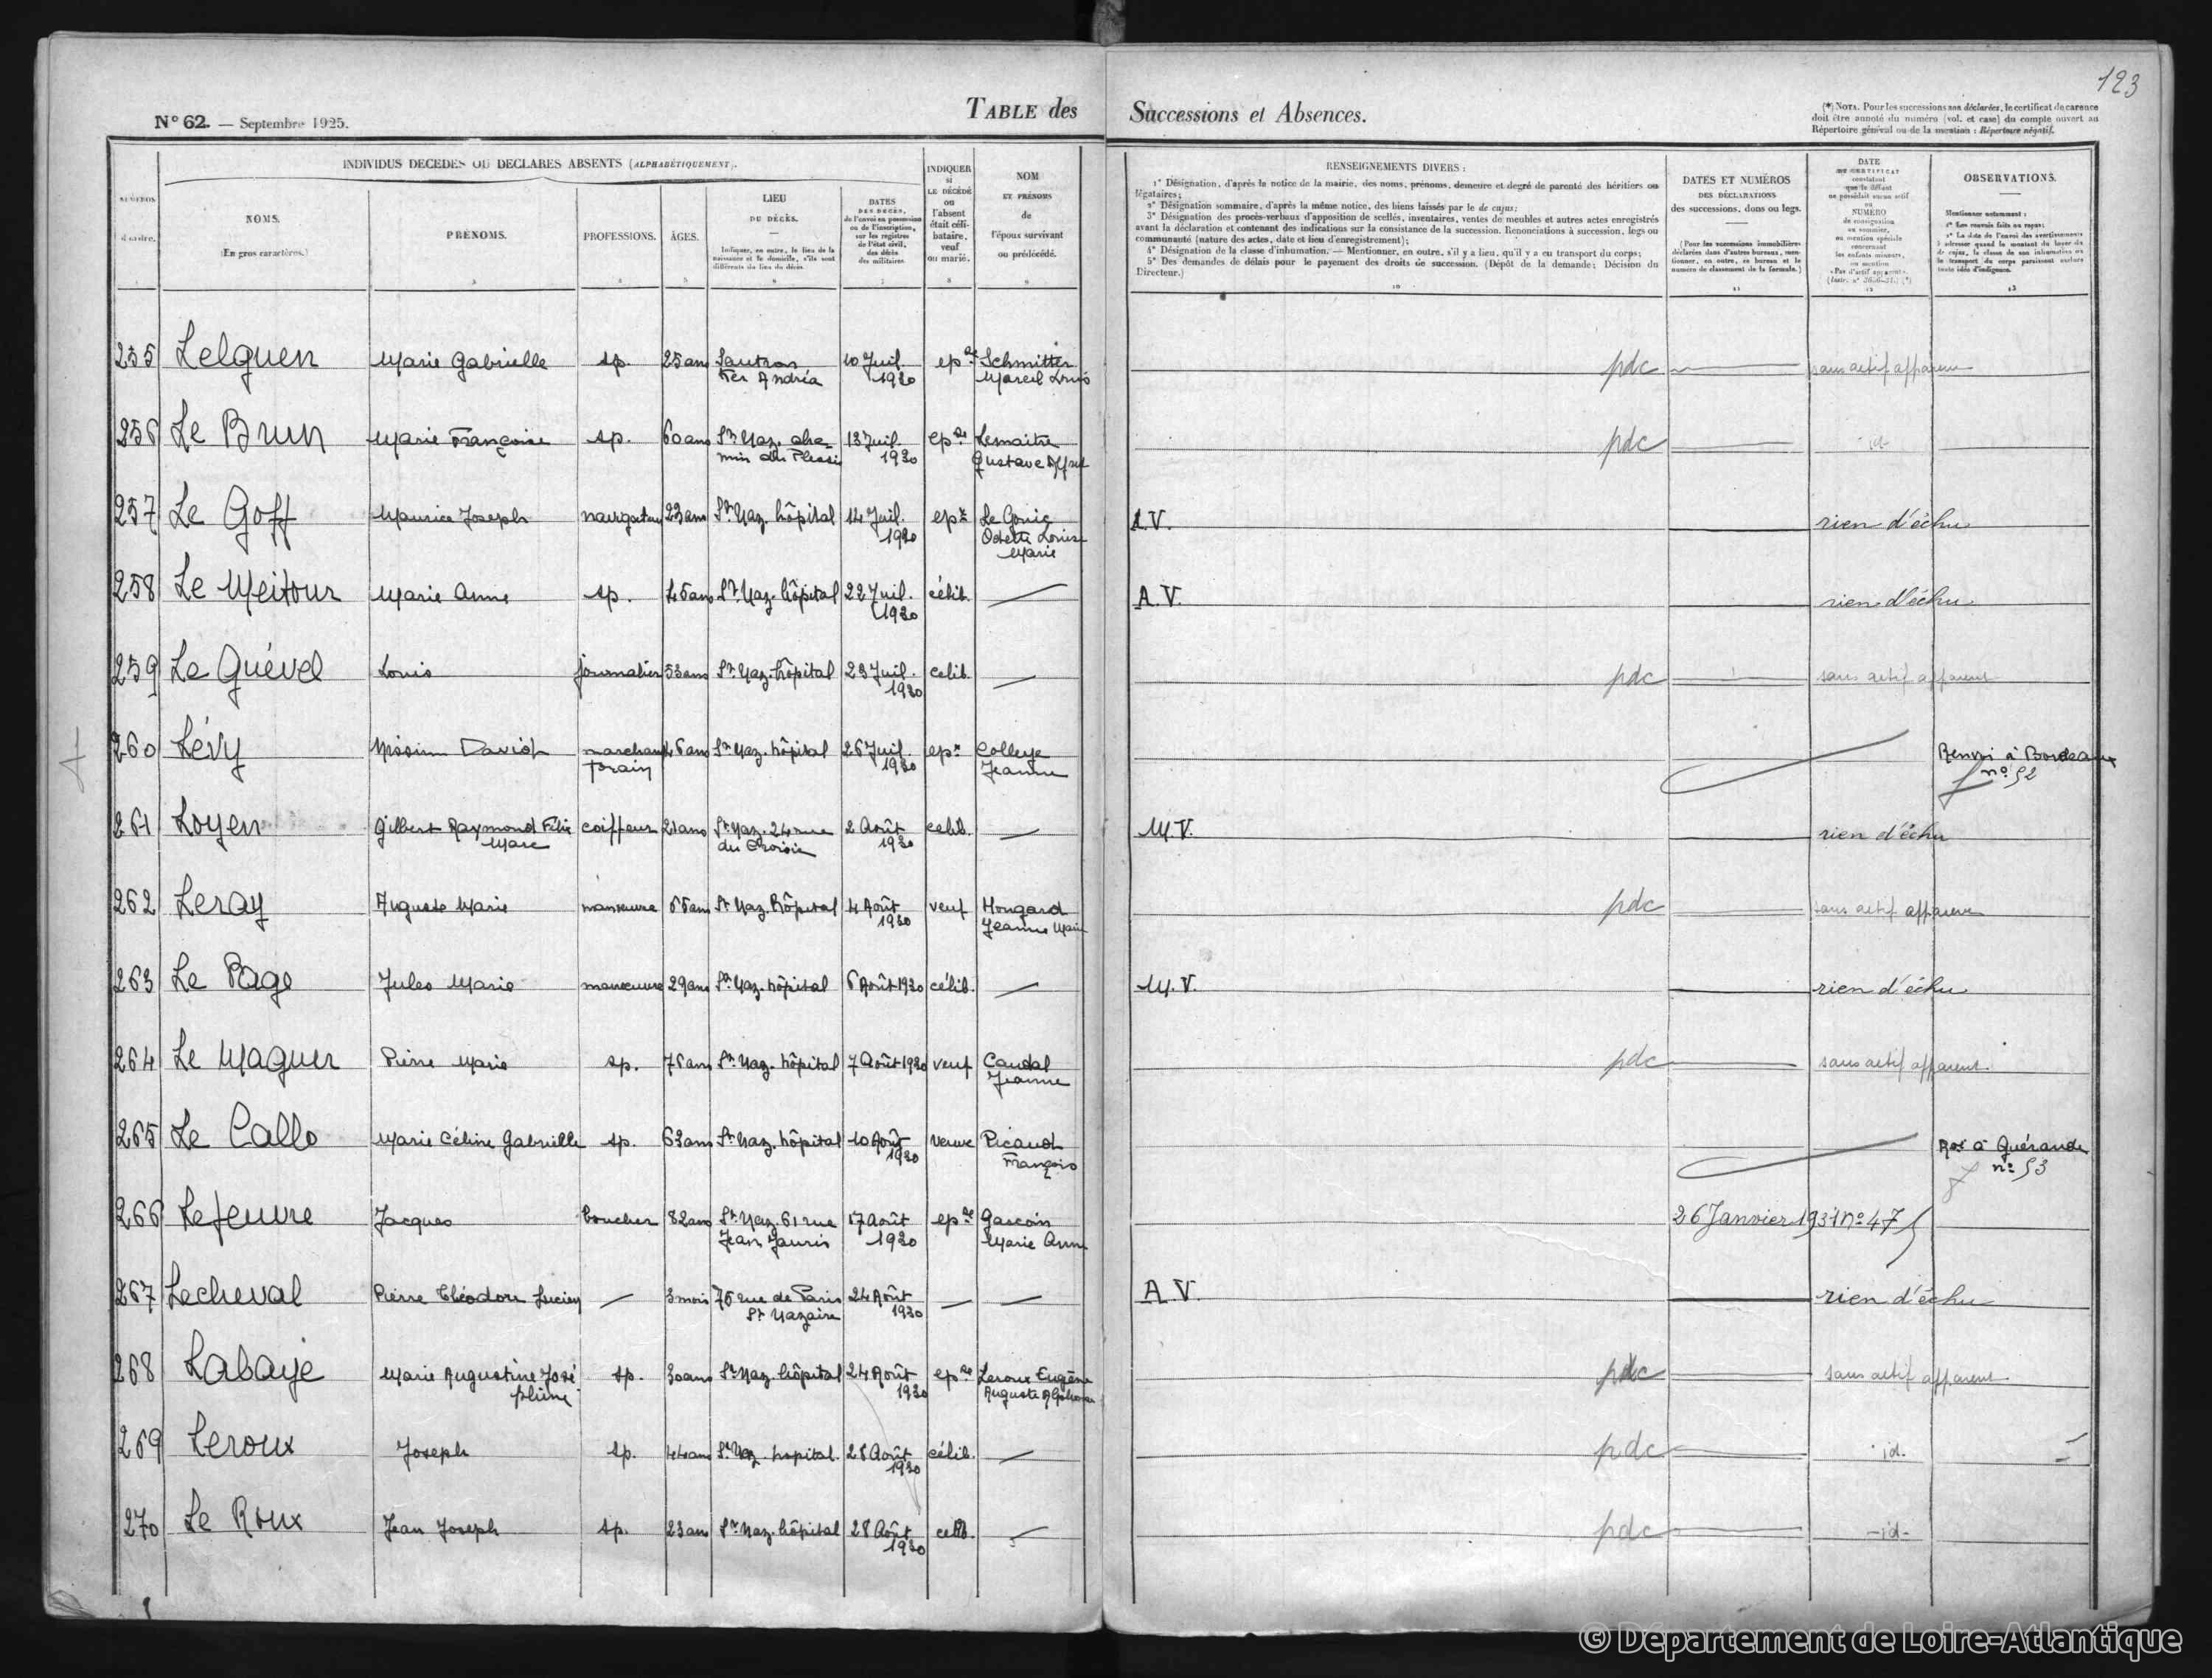 123
N° 62. — Septembre 1925.
TABLE des Successions et Absences.
(*) NOTA. Pour les successions non déclarées, le certificat de carence
doit être annoté du numéro (vol. et case) du compte ouvert au
Répertoire général ou de la mention : Répertoire négatif.
INDIVIDUS DÉCÉDÉS OU DÉCLARÉS ABSENTS (ALPHABÉTIQUEMENT).
NUMÉROS
d'ordre.
NOMS.
(En gros caractères.)
PRÉNOMS.
PROFESSIONS.
ÂGES.
LIEU
DU DÉCÈS.
Indiquer, en outre, le lieu de la
naissance et le domicile, s'ils sont
différents du lieu du décès.
DATES
DES DÉCÈS,
de l'envoi en possession
ou de l'inscription,
sur les registres
de l'état civil,
des décès
des militaires
INDIQUER
si
LE DÉCÉDÉ
ou
l'absent
était céli-
bataire,
veuf
ou marié.
NOM
ET PRÉNOMS
de
l'époux survivant
ou prédécédé.
RENSEIGNEMENTS DIVERS :
1° Désignation, d'après la notice de la mairie, des noms, prénoms, demeure et degré de parenté des héritiers ou
légataires;
2° Désignation sommaire, d'après la même notice, des biens laissés par le de cujus;
3° Désignation des procès-verbaux d'apposition de scellés, inventaires, ventes de meubles et autres actes enregistrés
avant la déclaration et contenant des indications sur la consistance de la succession. Renonciations à succession, legs ou
communauté (nature des actes, date et lieu d'enregistrement);
4° Désignation de la classe d'inhumation. — Mentionner, en outre, s'il y a lieu, qu'il y a eu transport du corps;
5° Des demandes de délais pour le payement des droits de succession. (Dépôt de la demande; Décision du
Directeur.)
DATES ET NUMÉROS
DES DÉCLARATIONS
des successions, dons ou legs.
(Pour les successions immobilières
déclarées dans d'autres bureaux, men-
tionner, en outre, ce bureau et le
numéro de classement de la formule.)
DATE
DU CERTIFICAT
constatant
que le défunt
ne possédait aucun actif
ou
NUMÉRO
de consignation
au sommier,
ou mention spéciale
concernant
les enfants mineurs,
ou mention
« Pas d'actif apparent ».
OBSERVATIONS.
Mentionner notamment :
1° Les renvois faits ou reçus;
2° La date de l'envoi des avertissements
à adresser quand le montant du loyer du
de cujus, la classe de son inhumation ou
le transport du corps paraissent exclure
toute idée d'indigence.
255 Lelguen Marie Gabrielle sp. 25 ans Lautran 10 Juil. ep se Schmitter pdc sans actif apparent
Ker Andréa 1930 Marcel Louis
256 Le Brun Marie Françoise sp. 60 ans St Naz. che- 13 Juil. ep se Lemaitre pdc id
min du Plessis 1930 Gustave Alfred
257 Le Goff Maurice Joseph navigateur 23 ans St Naz. hôpital 14 Juil. ep x Le Gouic A.V. rien d'échu
1930 Odette Louise
Marie
258 Le Meitour Marie Anne sp. 45 ans St Naz. hôpital 22 Juil. célib. — A.V. rien d'échu
1930
259 Le Quével Louis journalier 53 ans St Naz. hôpital 23 Juil. celib. — pdc sans actif apparent
1930
260 Lévy Nissim David marchand 46 ans St Naz. hôpital 26 Juil. ep x Colleye Renvoi à Bordeaux
forain 1930 Jeanne n° 52
261 Loyen Gilbert Raymond Félix coiffeur 21 ans St Naz. 24 rue 2 Août celib. — M.V. rien d'échu
Marc du Croisic 1930
262 Leray Auguste Marie manœuvre 66 ans St Naz. hôpital 4 Août veuf Hougard pdc sans actif apparent
1930 Jeanne Marie
263 Le Page Jules Marie manœuvre 29 ans St Naz. hôpital 6 Août 1930 célib. — M.V. rien d'échu
264 Le Maguer Pierre Marie sp. 76 ans St Naz. hôpital 7 Août 1930 veuf Caudal pdc sans actif apparent
Jeanne
265 Le Callo Marie Céline Gabrielle sp. 63 ans St Naz. hôpital 10 Août veuve Picaud Roi à Guérande
1930 François n° 53
266 Lefeuvre Jacques boucher 82 ans St Naz. 61 rue 17 Août ep se Gascoin 26 Janvier 1931 n° 47
Jean Jaurès 1930 Marie Anne
267 Lecheval Pierre Théodore Lucien — 3 mois 76 rue de Paris 24 Août — — A.V. rien d'échu
St Nazaire 1930
268 Labaye Marie Augustine José- sp. 30 ans St Naz. hôpital 24 Août ep se Leroux Eugène pdc sans actif apparent
phine 1930 Auguste Alphonse
269 Leroux Joseph sp. 44 ans St Naz. hopital. 28 Août célib. — pdc id.
1930
270 Le Roux Jean Joseph sp. 23 ans St Naz. hôpital 28 Août celib. — pdc -id-
1930
© Département de Loire-Atlantique